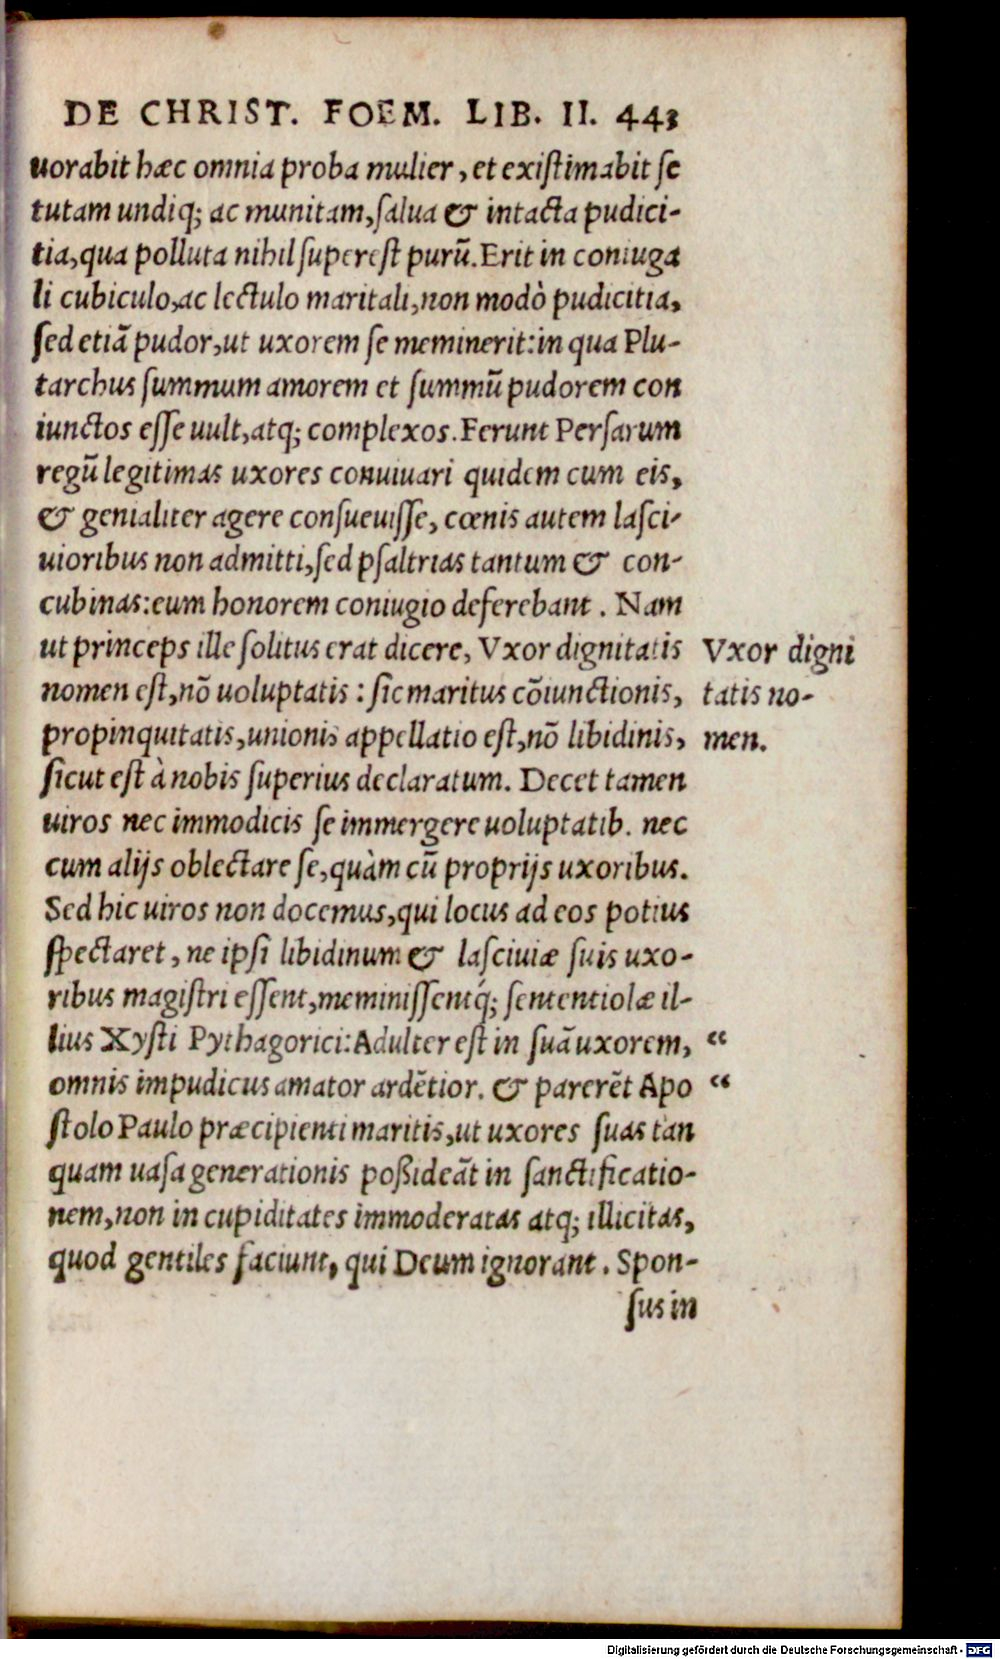 DE CHRIST. FOEM. LIB. II. 443
uorabit hæc omnia proba mulier, et existimabit se
tutam undiq; ac munitam, salua & intacta pudici-
tia, qua polluta nihil superest purū. Erit in coniuga
li cubiculo, ac lectulo maritali, non modò pudicitia,
sed etiā pudor, ut uxorem se meminerit: in qua Plu-
tarchus summum amorem et summū pudorem con
iunctos esse uult, atq; complexos. Ferunt Persarum
regū legitimas uxores conuiuari quidem cum eis,
& genialiter agere consueuisse, cœnis autem lasci-
uioribus non admitti, sed psaltrias tantum & con-
cubinas: eum honorem coniugio deferebant. Nam
ut princeps ille solitus erat dicere, Vxor dignitatis
nomen est, nō uoluptatis: sic maritus cōiunctionis,
propinquitatis, unionis appellatio est, nō libidinis,
sicut est à nobis superius declaratum. Decet tamen
uiros nec immodicis se immergere uoluptatib. nec
cum alijs oblectare se, quàm cū proprijs uxoribus.
Sed hic uiros non docemus, qui locus ad eos potius
spectaret, ne ipsi libidinum & lasciuiæ suis uxo-
ribus magistri essent, meminissentq́; sententiolæ il-
lius Xysti Pythagorici: Adulter est in suā uxorem,
omnis impudicus amator ardētior. & parerēt Apo
stolo Paulo præcipienti maritis, ut uxores suas tan
quam uasa generationis poßideāt in sanctificatio-
nem, non in cupiditates immoderatas atq; illicitas,
quod gentiles faciunt, qui Deum ignorant. Spon-
sus in
Vxor digni
tatis no-
men.
“
“
Digitalisierung gefördert durch die Deutsche Forschungsgemeinschaft - DFG